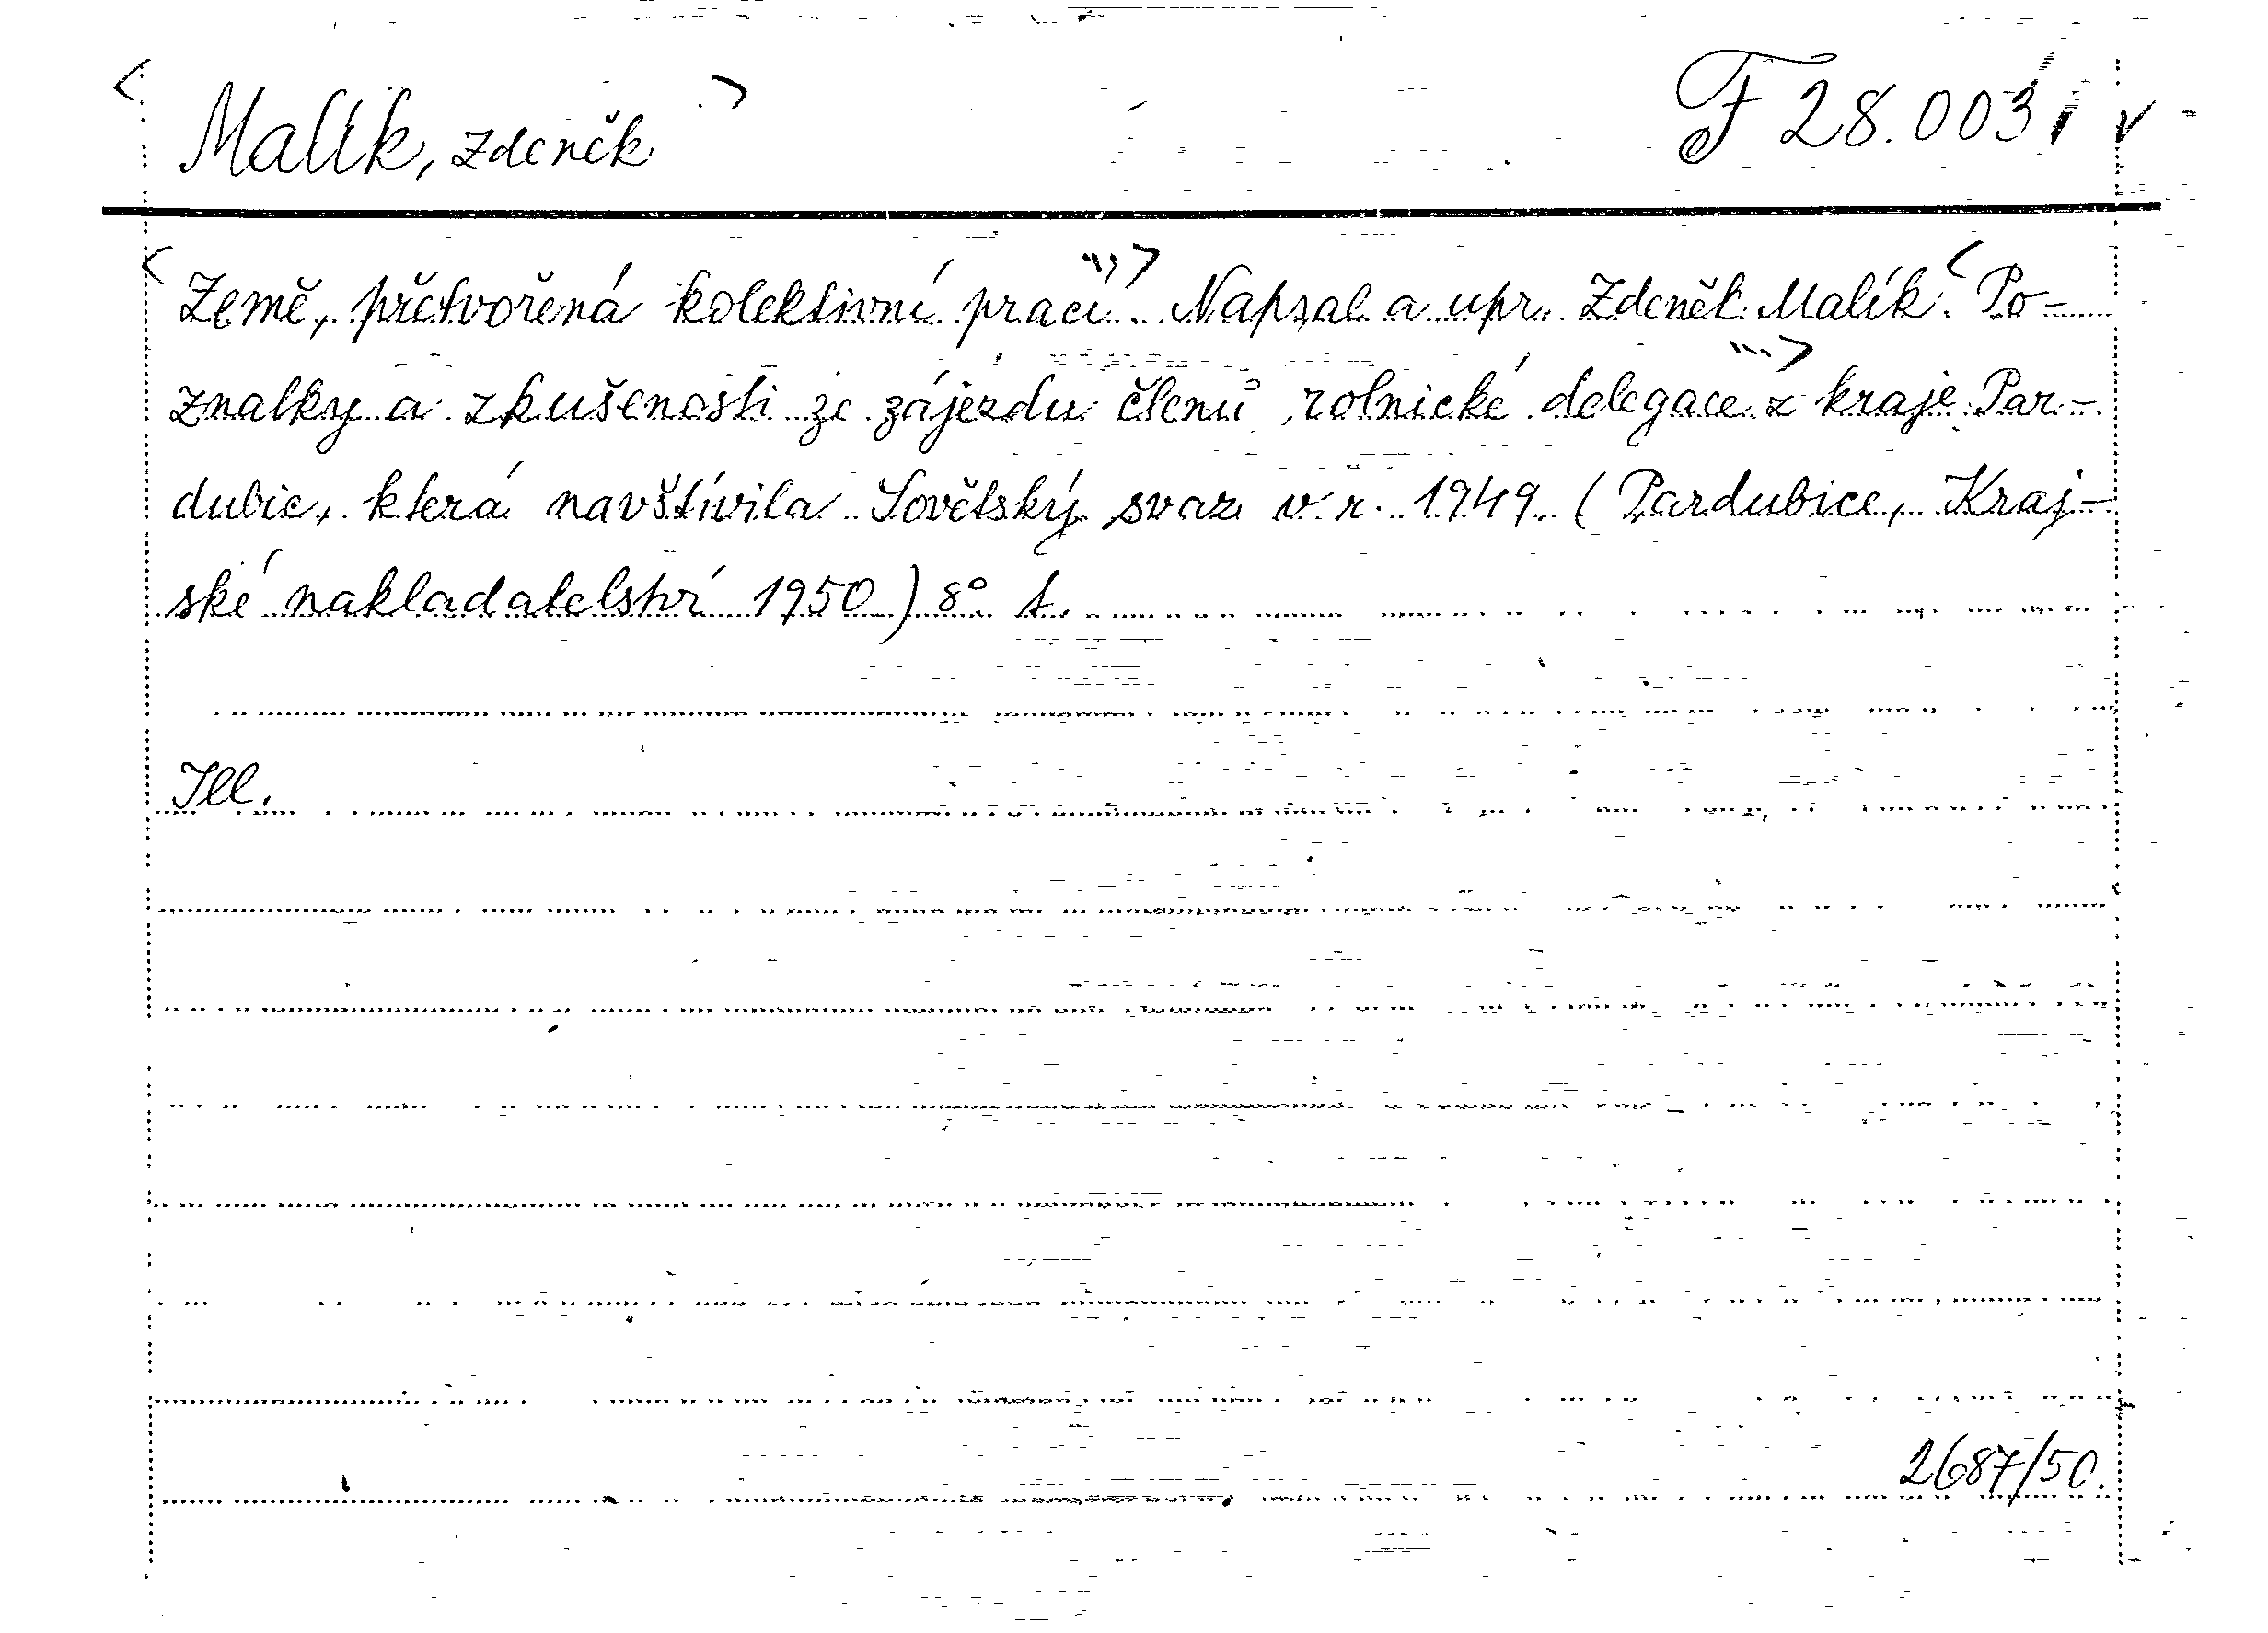 < Malík, Zdeněk > F 28.003 v
< Země, přetvořená kolektivní prací." > Napsal a upr. Zdeněk Malík. < Po-
znatky a zkušenosti ze zájezdu členů rolnické delegace "> z kraje Par-
dubic, která navštívila Sovětský svaz v r. 1949 (Pardubice, Kraj-
ské nakladatelství 1950) 8° t.
Ill.
2687/50.